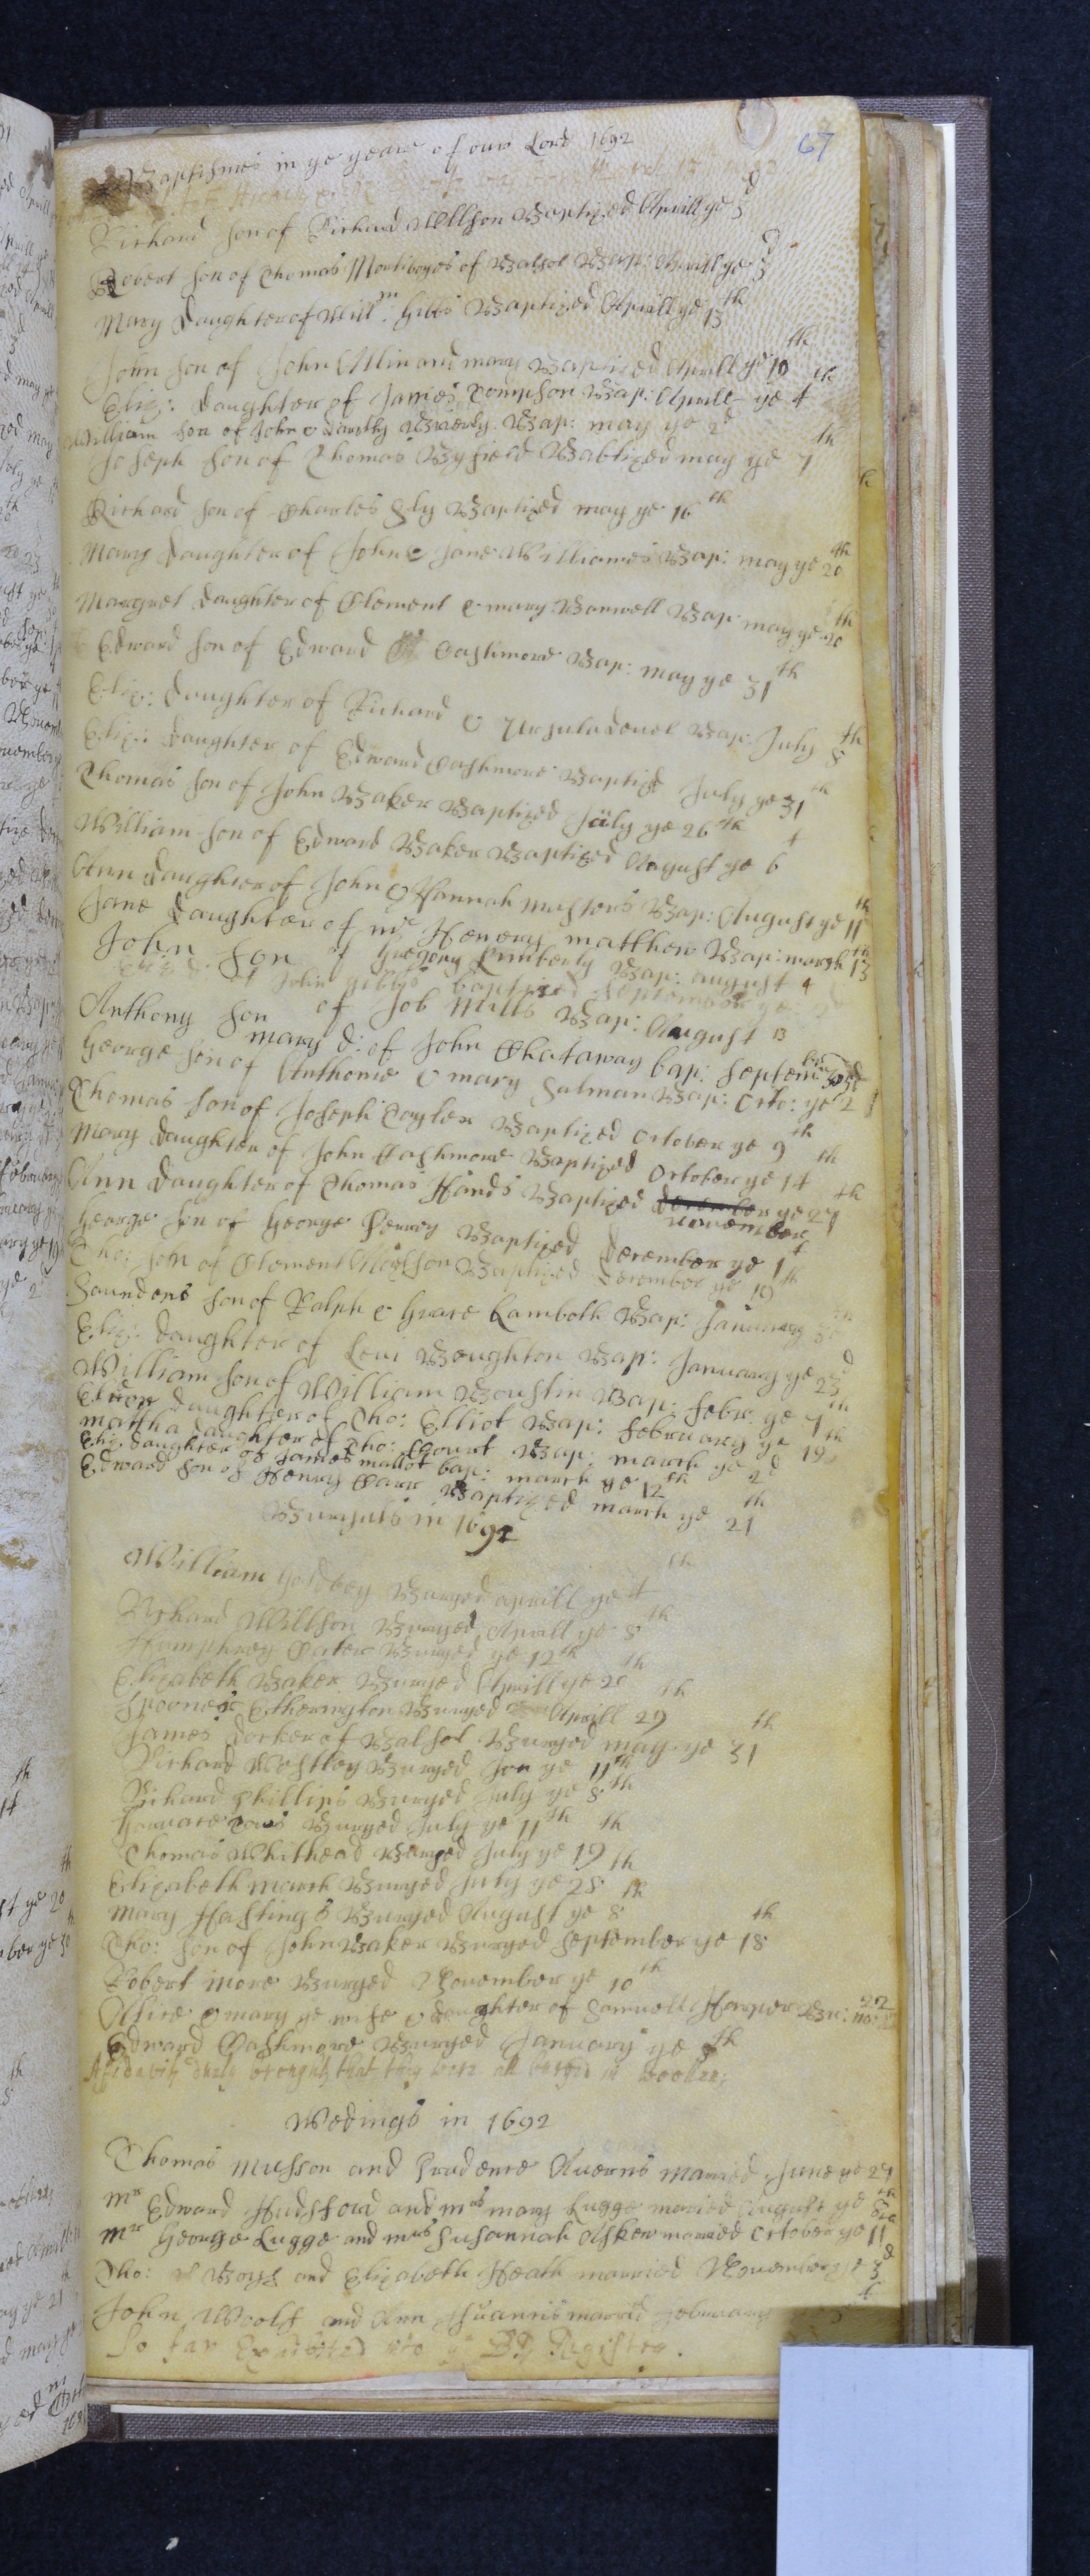 67
Baptismes in ye yeare of our Lord 1692
Richard son of Richard Willson Baptized Aprill ye 3d
Robert son of Thomas Mortiboyes of Balsol Bapt: Aprill ye 3d
Mary Daughter of Willm: Gibbs Baptized Aprill ye 13th
John son of John Allin and mary Baptized Aprill ye 10th
Eliz: Daughter of James Tompson Bap: Aprill ye 4th
William son of John & Dorothy Bap: may ye 2d
Joseph son of Thomas Byfield Babtized may ye 7th
Richard son of Charles Ely Baptized may ye 16th
Mary Daughter of John & Jane Williames Bap: may ye 20th
Margret Daughter of Clement & mary Borwell Bap may ye 20th
Edward son of Edward Cashmore Bap: may ye 31th
Eliz: Daughter of Richard & Ursula Bap: July 8th
Eliz: Daughter of Edward Cashmore Baptized July ye 31th
Thomas son of John Baker Baptized July ye 26th
William son of Edward Baker Baptized August ye 6
Ann Daughter of John & Hannah musters Bap: August ye 11th
Jane Daughter of mr Henery matthew Bap: march 13th
John son of Gregory Kimberly Bap: august 4
of John gibbs baptized September ye
Anthony son of Job Mills Bap: August 13
mary d: of John Chataway bap: Septembr
George son of Anthonie & mary Salman Bap: Octo: ye 2
Thomas son of Joseph Taylor Baptized October ye 9th
Mary Daughter of John Cashmore Baptized October ye 14th
Ann Daughter of Thomas Hands Baptized December ye 27th
november
George son of George Perrey Baptized December ye 1st
Tho: son of Clement Baptized December ye 19th
Saunders son of Ralph & Grace Lamboth Bap: January
Eliz: Daughter of Levi Boughton Bap: January ye 23d
William son of William Boustin Bap: Febr: ye 7th
Daughter of Tho: Elliot Bap: February ye 19th
martha Daughter of Tho: Court Bap: march ye 2d
Eliz Daughter of James mallot bap: march ye 12th
Edward son of Henry Carr Baptized march ye 21th
Buryals in 1692
William Goldbey Buryed aprill ye 4th
Richard Willson Buryed Aprill ye 8th
Humphrey Carter Buryed ye 12th
Elizabeth Baker Buryed Aprill ye 20th
Spooner Etherington Buryed Aprill 29th
James Dorker of Balsol Buryed may ye 31th
Richard Westley Buryed Jun ye 11th
Richard Phillips Buryed July ye 8th
Buryed July ye 11th
Thomas Whithead Buryed July ye 19th
Elizabeth march Buryed July ye 28th
Mary Hastings Buryed August ye 8th
Tho: son of John Baker Buryed September ye 18th
Robert more Buryed November ye 10th
Alice & mary ye wife & daughter of Samuell Harper Bu: no: 22
Edward Cashmore Buryed January ye th
Affidavits duly brought that they were all buryed in woollen
Wedings in 1692
Thomas Musson and Prudence Averns Married June ye 27
Mr Edward Hudsford and mrs mary Lugge maried August ye
Mr George Lugge and mrs Susannah Askew married October ye 11th
Tho: Boyse and Elizabeth Heath married November ye 3d
John Woolf and Ann married February
So far Exhibited into ye Bps Register.